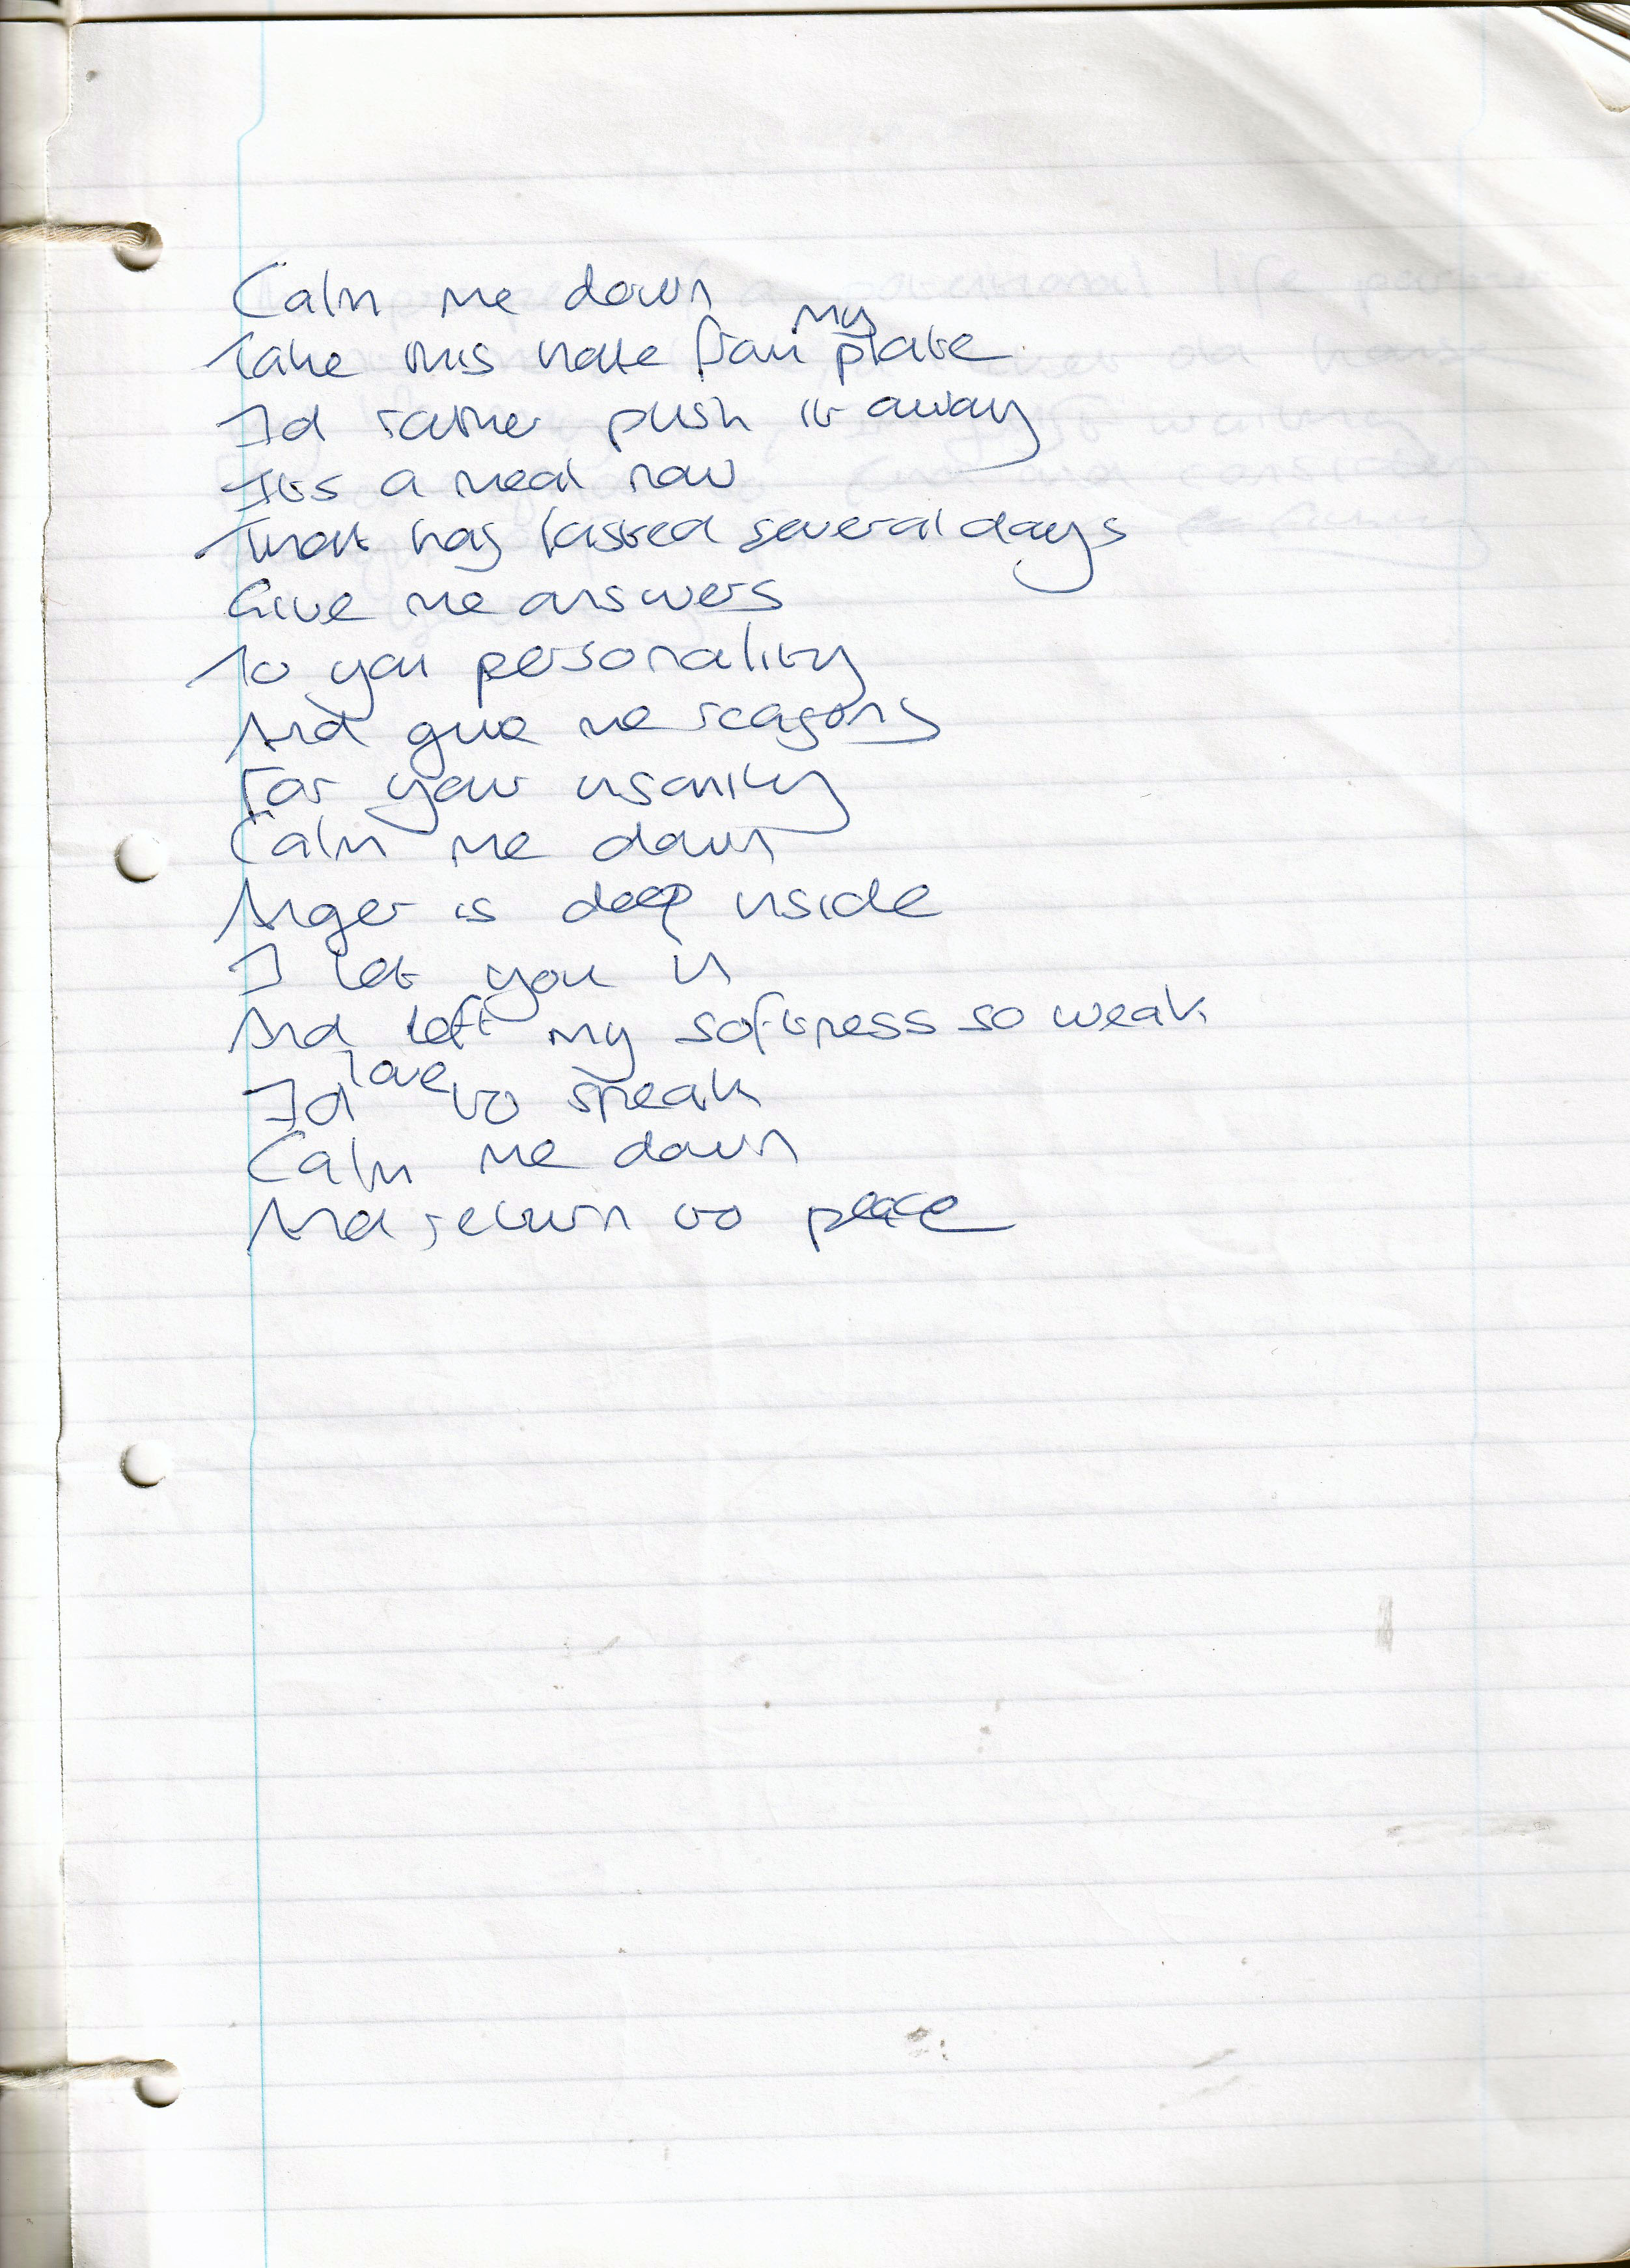 Calm me down
Take this hate from my plate
Id rather push it away
Its a meal now
That has lasted several days
Give me answers
To you personality
And give me reasons
For your insanity
Calm me down
Anger is deep inside
I let you in
And left my softness so weak
Id love to speak
Calm me down
And return to peace